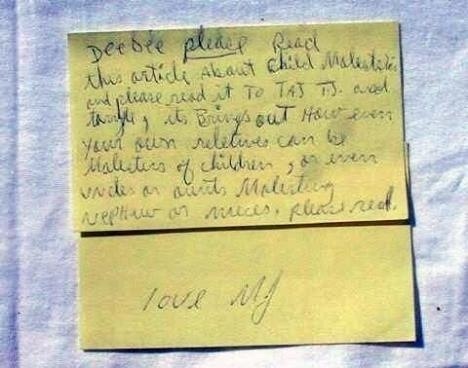 DeeDee please Read
this article About Child Molestation
and please read it TO TAJ T.J. and
taryll, its Brings out How even
your own reletives can be
Molesters of children, or even
Uncles or aunts Molesting
nephew or nieces. please read.
love MJ